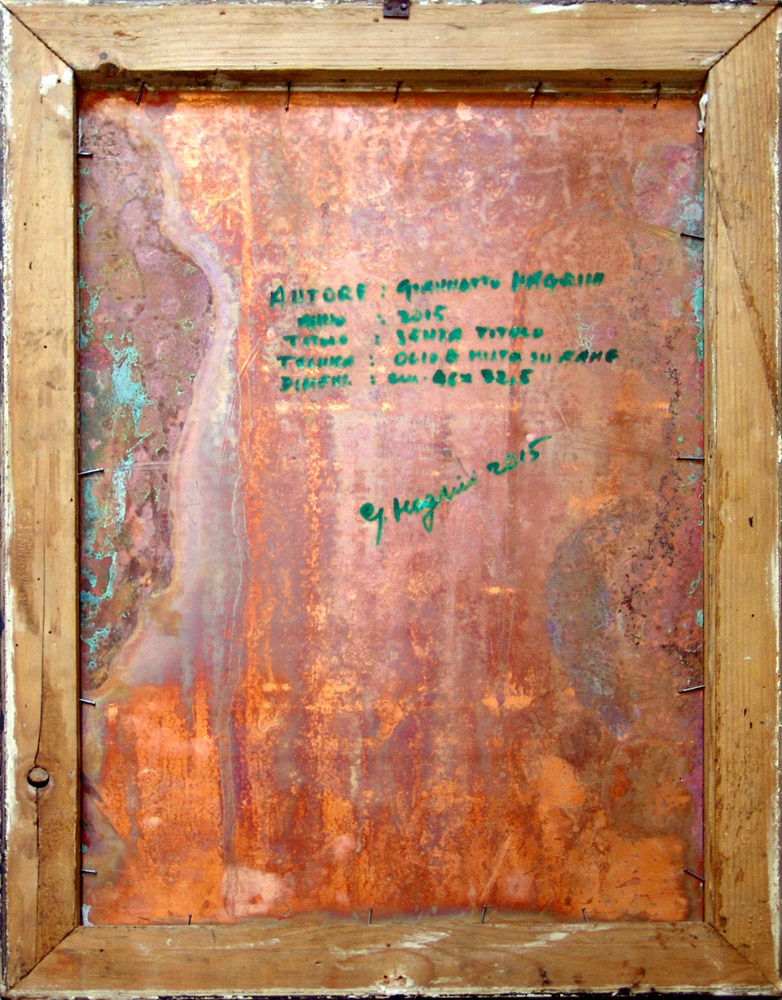 AUTORE : GIANNOTTO MAGRINI
ANNO : 2015
TITOLO : SENZA TITOLO
TECNICA : OLIO E MISTO SU RAME
DIMENS. : cm. 46x 32,5
G. Magrini 2015